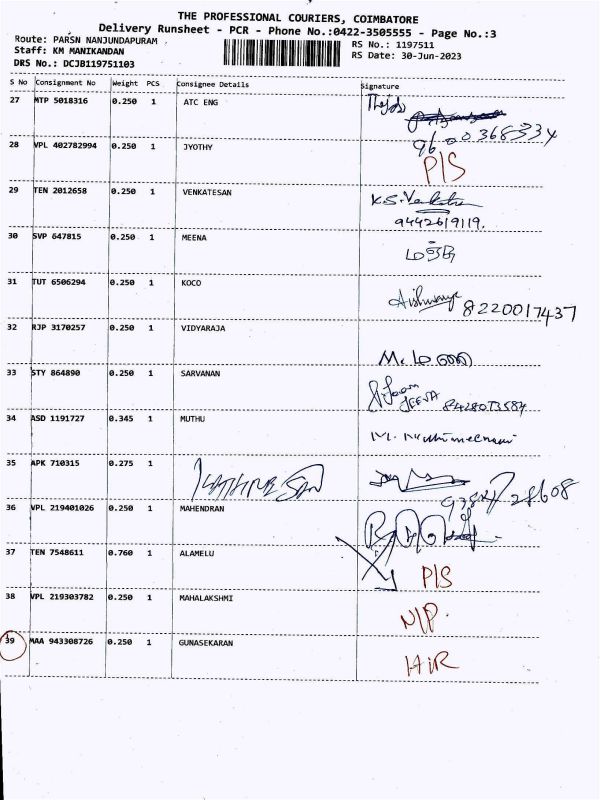 THE PROFESSIONAL COURIERS, COIMBATORE
Delivery Runsheet - PCR - Phone No.:0422-3505555 - Page No.:3
Route: PARSN NANJUNDAPURAM
RS No.: 1197511
Staff: KM MANIKANDAN
RS Date: 30-Jun-2023
DRS No.: DCJB119751103
S No Consignment No Weight PCS Consignee Details Signature
27 MTP 5018316 0.250 1 ATC ENG
28 VPL 402782994 0.250 1 JYOTHY P/S
29 TEN 2012658 0.250 1 VENKATESAN K.S. Venkatesan
9442619119.
30 SVP 647815 0.250 1 MEENA
31 TUT 6506294 0.250 1 KOCO Aishwarya 8220017437
32 RJP 3170257 0.250 1 VIDYARAJA
33 STY 864890 0.250 1 SARVANAN
JEEVA 8428073584
34 ASD 1191727 0.345 1 MUTHU M. Muthumeenal
35 APK 710315 0.275 1
36 VPL 219401026 0.250 1 MAHENDRAN
37 TEN 7548611 0.760 1 ALAMELU P/S
38 VPL 219303782 0.250 1 MAHALAKSHMI N/P.
39 MAA 943308726 0.250 1 GUNASEKARAN HIR